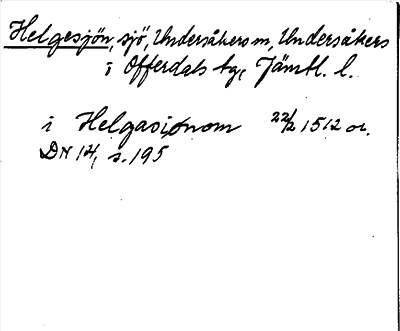 Helgesjön, sjö, Undersåkers sn, Undersåkers
i Offerdals tg, Jämtl. l.
i Helgasiønom 22/2 1512 or.
DN 14, s. 195